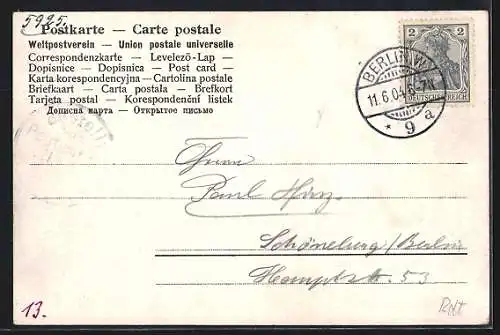 5925.
Postkarte — Carte postale
Weltpostverein — Union postale universelle
Correspondenzkarte — Levelező-Lap —
Dopisnice — Dopisnica — Post card —
Karta korespondencyjna — Cartolina postale
Briefkaart — Carta postala — Brefkort
Tarjeta postal — Korespondenční listek
Дописна карта — Открытое письмо
2 2
DEUTSCHES REICH
BERLIN W.
11.6.04. 6-7N.
* 9 a
Herrn
Paul
Schöneberg/Berlin
Hauptstr. 53
13.